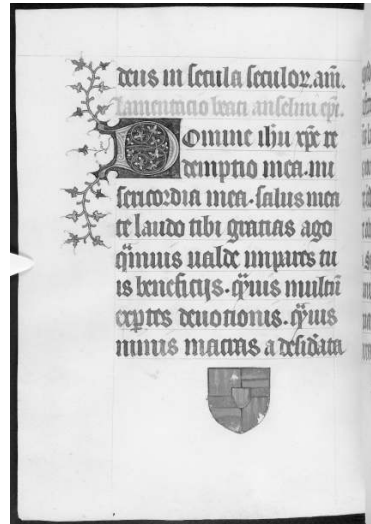 deus in secula seculoꝝ. am̄.
lamentacio beati anselmi ep̄i.
Domine ih̄u xp̄e re
demptio mea. mi
sericordia mea. salus mea
te laudo tibi gratias ago
qͣmuis ualde impares tu
is beneficijs. qͣuis multū
exp̄tes deuotionis. qͣuis
nimis macras a desid̓ata